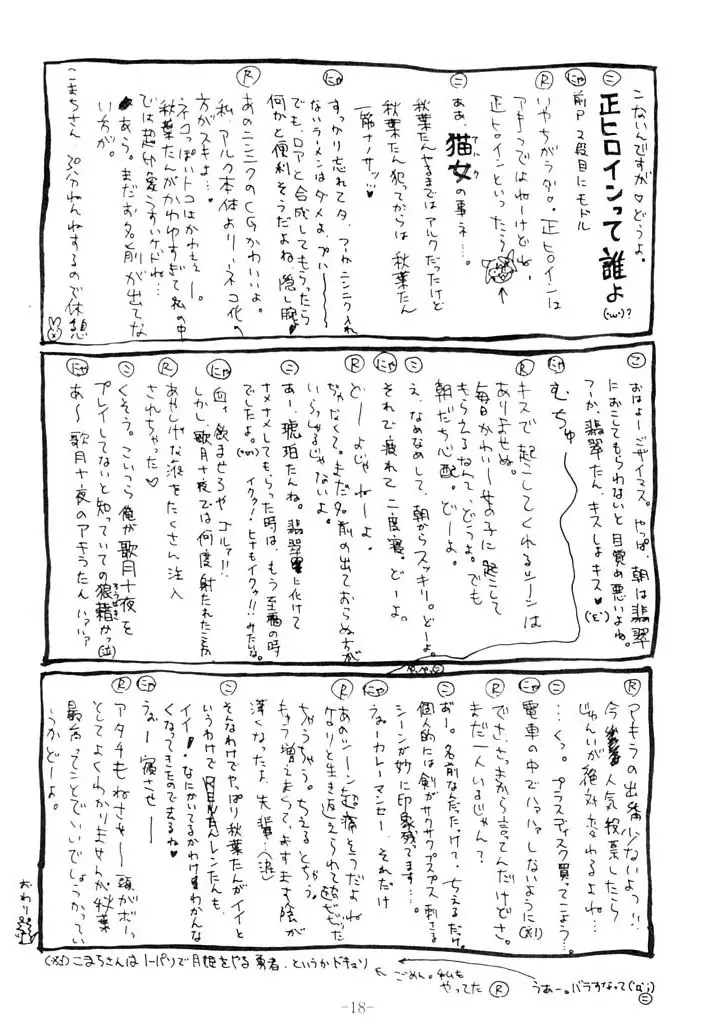 こないんですが♡どうよ。
㋥ 正ヒロインって誰よ(・ω・)?
前P 2段目にモドル
Ⓡ いやちがうダロ。正ヒロインは
アキラではねーけどサ。
正ヒロインといったら
㋥ ああ、猫女の事ネ…。
秋葉たんやるまではアルクだったけど
秋葉たん犯ってからは 秋葉たん
一筋ナノサッ…♡
すっかり忘れてタ、
ないラーメンはダメよ、プハー
でも、ロアと合成してもらったら
何かと便利そうだよね 隠し腕♥
Ⓡ あのニンニクのCGかわいいよ。
私、アルク本体より、ネコ化の
方がスキよ…。
ネコっぽいトコはかわぇー。
秋葉たんがかわゆすぎて私の中
では超印象うすいケドね…
あう。まだお名前が出てな
い方が。
こまちさん、30分ねんねするので休憩
㋙ おはよーゴザイマス。やっぱ、朝は翡翠
におこしてもらわないと目覚め悪いよね。
つーか、翡翠たん、キスしよキス♥
むちゅー
Ⓡ キスで起こしてくれるシーンは
ありませぬ。
毎日かわいー女の子に起こして
もらえるなんて、どうよ。でも
朝だち心配。どーよ。
㋥ え、なめなめして、朝からスッキリ。どーよ。
それで疲れて二度寝。どーよ。
Ⓡ どーよじゃねーよ。
ぢゃなくて。まだ名前の出ておらぬ方が
いらっしゃるじゃないよ。
㋥ あー、琥珀たんね。翡翠に化けて
ナメナメしてもらった時は、もう至福の時
でしたよ。イクゥ!ヒトもイクゥ!!みたいな。
血ィ飲ませろや ゴルァ!!
しかし、歌月十夜では何度射たれたことか
Ⓡ あやしげな液をたくさん注入
されちゃった♡
㋥ くそう。こいつら俺が歌月十夜を
プレイしてないと知っていての狼藉かっ(泣)
あ〜 歌月十夜のアキラたん ハァハァ
Ⓡ アキラの出番少ないよっ!!
今後、人気投票したら
じゅんいが絶対変わるよね…
㋥ …くっ。プラスディスク買ってこよう…。
電車の中でハァハァしないように(※1)
Ⓡ でさ、さっきから言ってんだけどさ。
まだ一人いるじゃん?
㋥ おー。名前なんだたっけて、ちえるだけ。
個人的には剣がサクサクプスプス刺さる
シーンが妙に印象残でます…。
うぁーカレーマンセー。それだけ
Ⓡ あのシーン超痛そうだよね
ちゃうちゃう。ちえるとちゃう。
キャラ増えまくって、ますます陰が
深くなったよ、先輩…(泣)
㋥ そんなわけでやっぱり秋葉たんがイイと
いうわけで レンたんも
イイ!なにかいてるかわけわかんな
くなってきたので去るね♥
うぉー 寝させー
Ⓡ アタチもねさせー 頭がボーっ
としてよくわかりませんが秋葉
最高ってことでいいでしょうかってい
うかどーよ。
おわり
(※1)こまちさんはノーパソで月姫をやる勇者。というかドキュソ
ごめん。私も
やってた Ⓡ
うあー。バラすなって
-18-